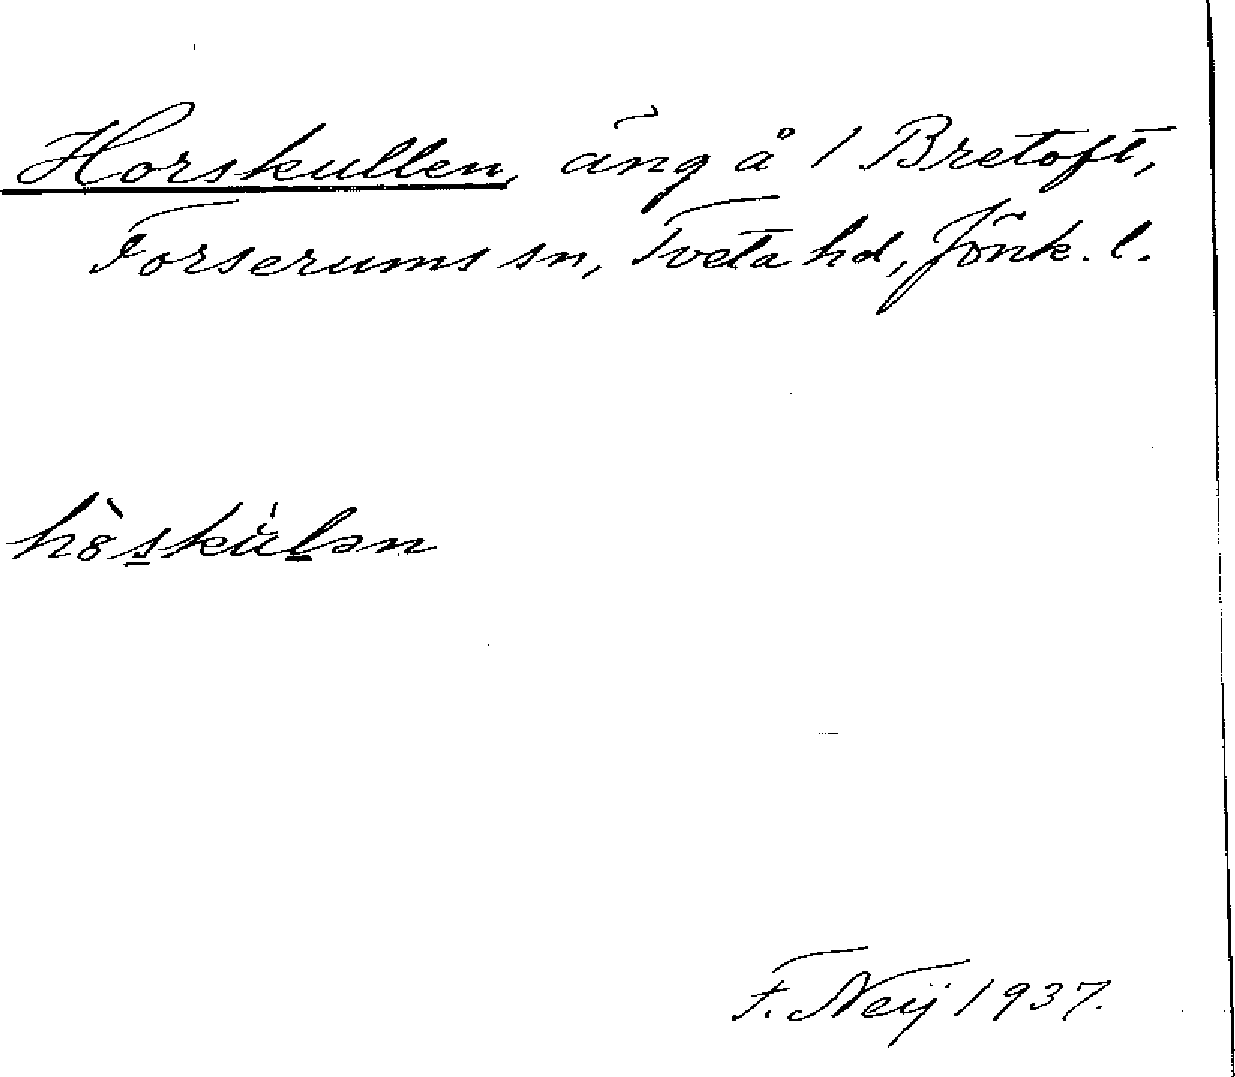 Horskullen, äng å 1 Bretoft,
Forserums sn, Tveta hd, Jönk. l.
hòskúlən
F. Neij 1937.